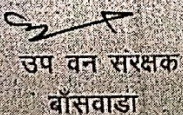 उप वन संरक्षक
बाँसवाडा